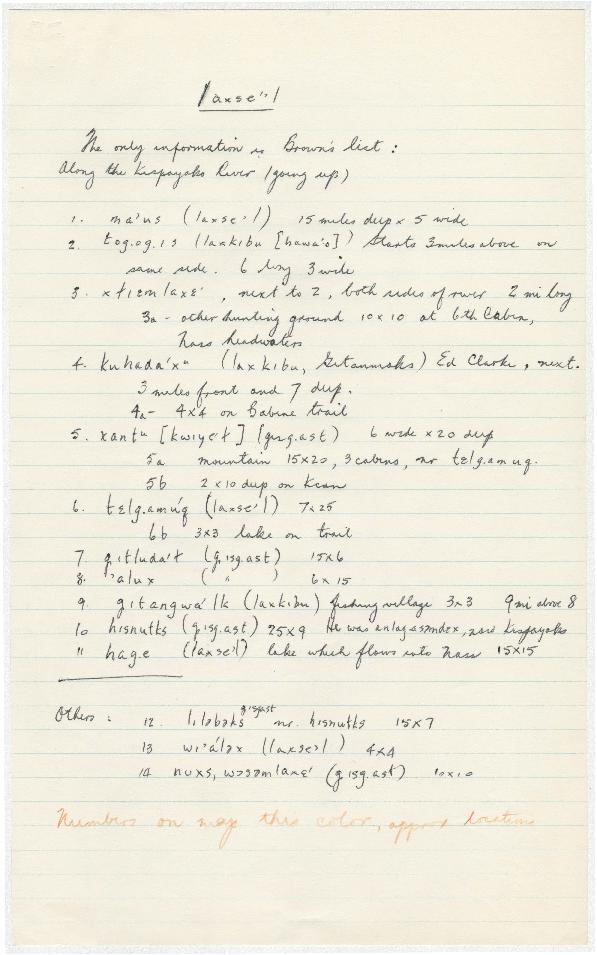 laxse'l
The only information is Brown's list :
Along the Kispayaks River (going up)
1. ma'us (laxse'l) 15 miles deep x 5 wide
2. tog.og.is (laxkibu [hawa'o]) Starts 3 miles above on
same side. 6 long 3 wide
3. , next to 2, both sides of river 2 mi long
3a - other hunting ground 10 x 10 at 6th Cabin,
Nass headwaters
4. kuhada'xᵘ (laxkibu, Gitanmaks) Ed Clarke, next.
3 miles front and 7 deep.
4a - 4x4 on Babine trail
5. xantᵘ [kwiye't] (gisg.ast) 6 wide x 20 deep
5a mountain 15x20, 3 cabins, nr tɛlg.amuq.
5b 2 x 10 deep on
6. tɛlg.amu'q (laxse'l) 7x25
6b 3x3 lake on trail
7. gitluda't (g.isg.ast) 15x6
8. 'alux ( " ) 6 x 15
9. gitangwa'lk (laxkibu) fishing village 3x3 9 mi above 8
10 hisnutks (g.isg.ast) 25x9 He was now Kispayaks
11 hag.e (laxse'l) lake which flows into Nass 15x15
Others : 12. lilabaks gisgast nr. hisnutks 15x7
13 wi'álax (laxse'l) 4x4
14 nuxs, (g.isg.ast) 10x10
Numbers on map this color, approx locations